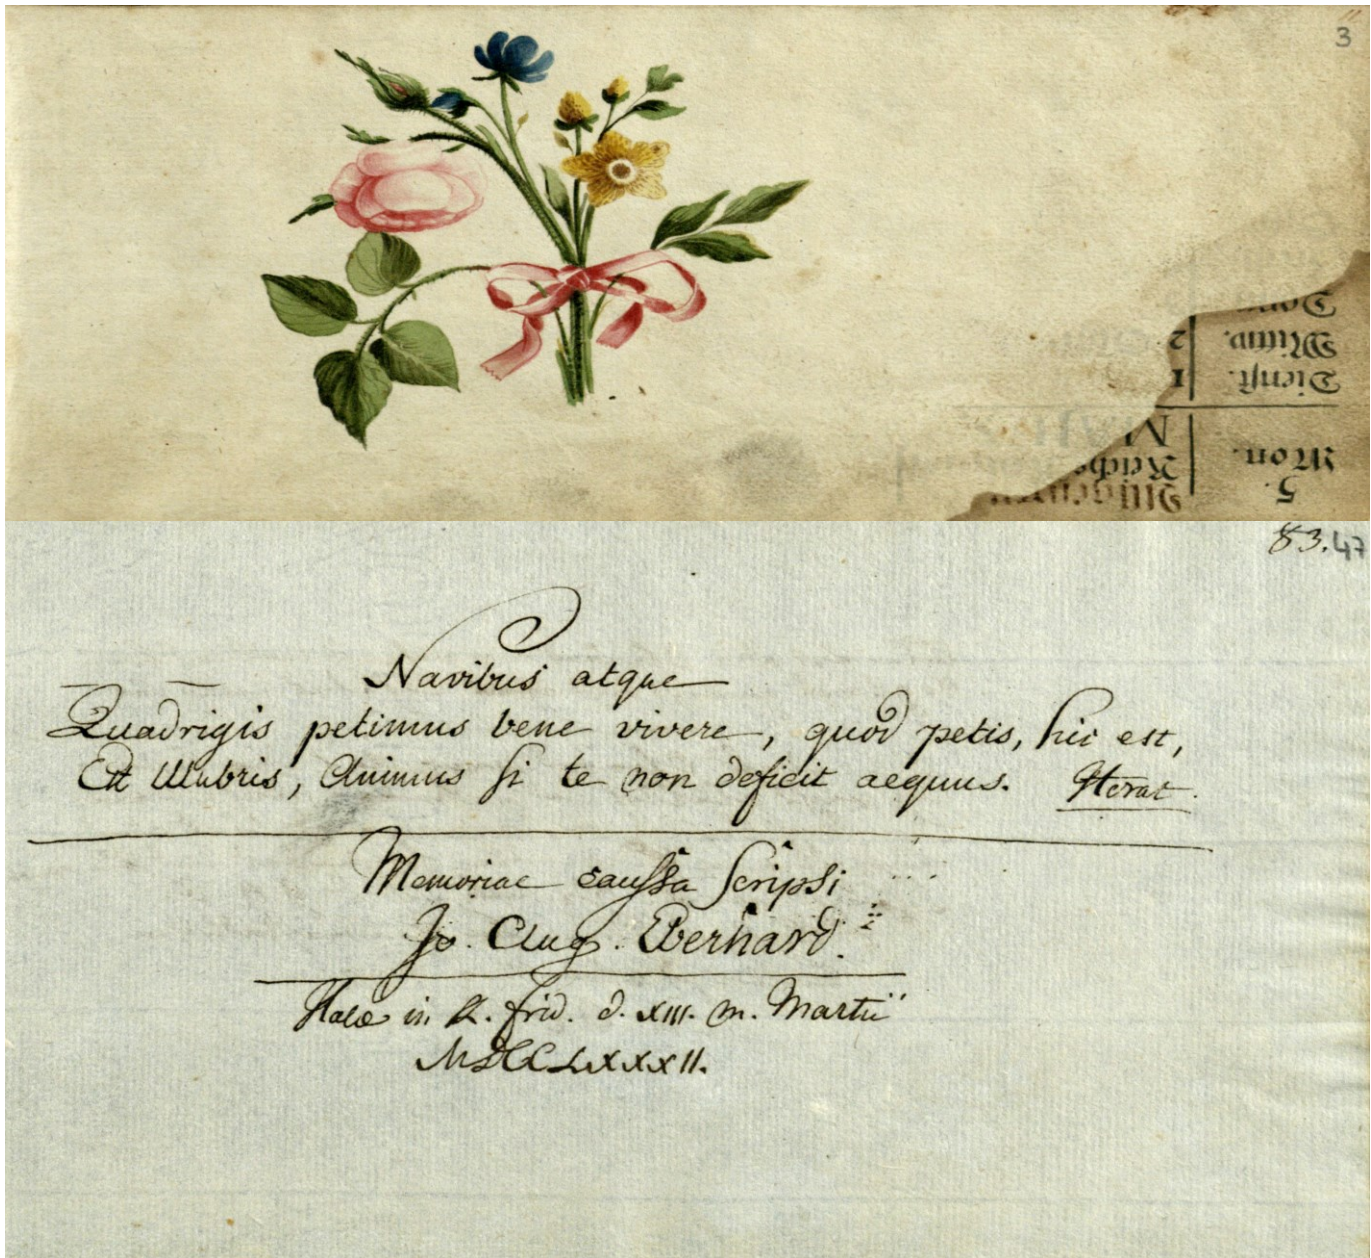 3
5.
Mon.
Dienst. 1
Mittw. 2
83. 47
Navibus atque
Quadrigis petimus bene vivere, quod petis, hic est,
Est Ulubris, Animus si te non deficit aequus. Horat.
Memoriae caussa scripsi
Jo. Aug. Eberhard.
Halae in R. frid. d. XIII. m. Martii
MDCCLXXXII.